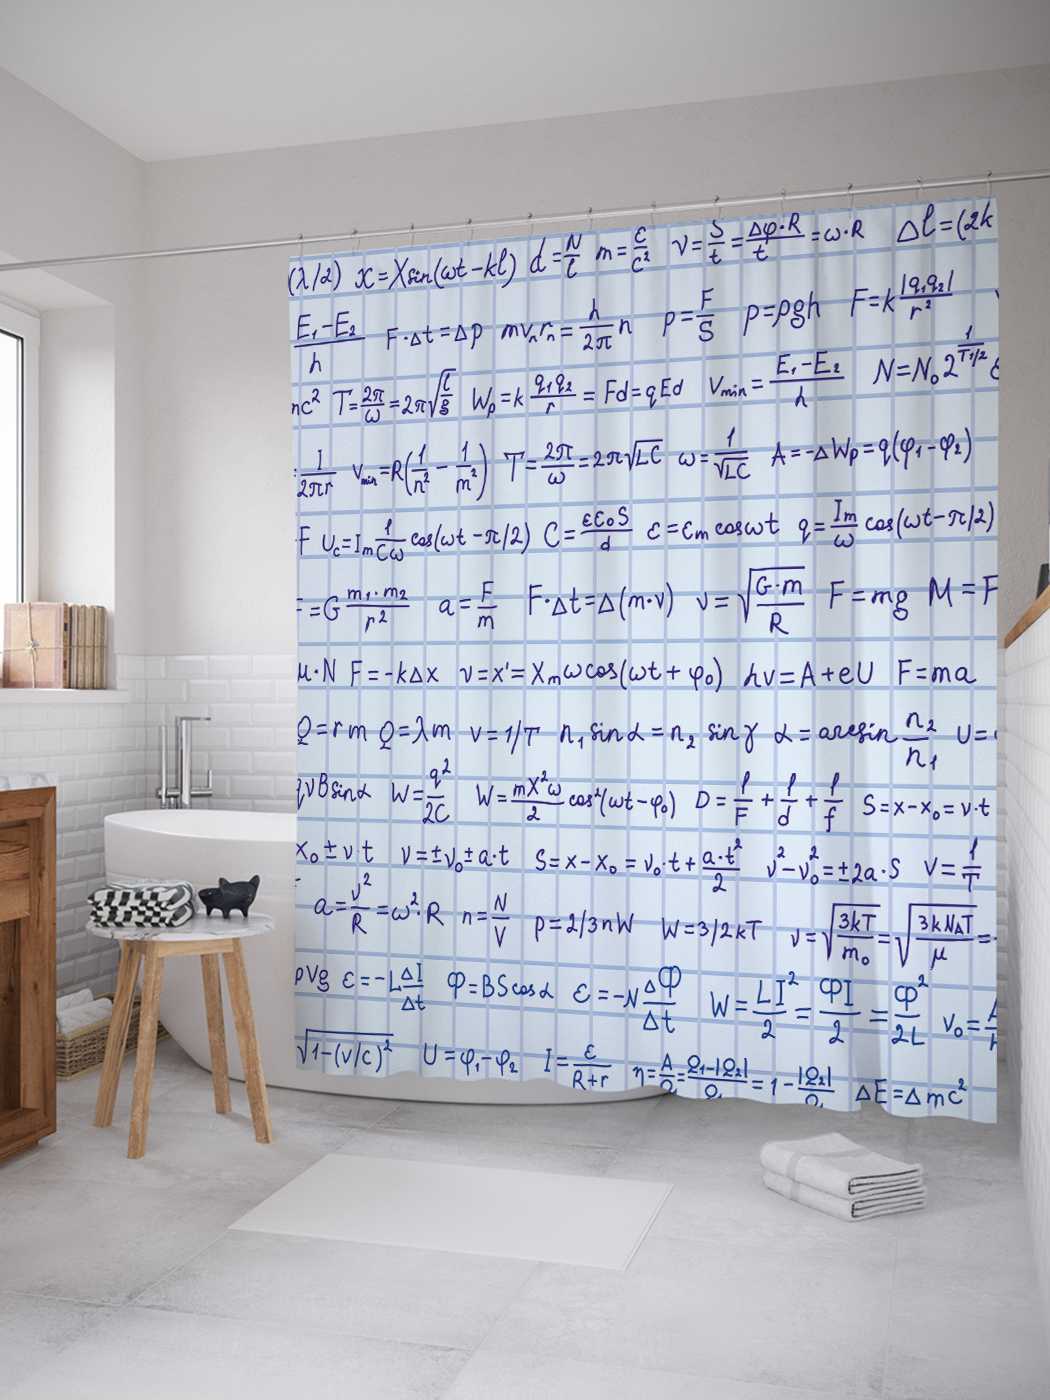 (λ/2) x=Xsin(ωt-kl) d=N/l m=ε/c² v=S/t=Δφ·R/t=ω·R Δl=(2k
E₁-E₂/h F·Δt=Δp mvₙrₙ=h/2π n p=F/S p=ρgh F=k|q₁q₂|/r²
mc² T=2π/ω=2π√(l/g) Wₚ=k q₁q₂/r=Fd=qEd νmin=E₁-E₂/h N=N₀2^(1/T1/2)
I/2πr νmin=R(1/n²-1/m²) T=2π/ω=2π√LC ω=1/√LC A=-ΔWp=q(φ₁-φ₂)
F Uc=Im 1/Cω cos(ωt-π/2) C=εε₀S/d ε=εm cosωt q=Im/ω cos(ωt-π/2)
=G m₁·m₂/r² a=F/m F·Δt=Δ(m·v) v=√(G·m/R) F=mg M=F
μ·N F=-kΔx v=x'=Xmωcos(ωt+φ₀) hν=A+eU F=ma
Q=rm Q=λm ν=1/T n₁sinα=n₂sinγ α=arcsin n₂/n₁ U=
qvBsinα W=q²/2C W=mX²ω/2 cos²(ωt-φ₀) D=1/F+1/d+1/f S=x-x₀=v·t
x₀±vt v=±v₀±a·t S=x-x₀=v₀·t+a·t²/2 v²-v₀²=±2a·S ν=1/T
a=v²/R=ω²·R n=N/V p=2/3nW W=3/2kT v=√(3kT/m₀)=√(3kNAT/μ)=
ρVg ε=-LΔI/Δt Φ=BScosα ε=-NΔΦ/Δt W=LI²/2=ΦI/2=Φ²/2L ν₀=
√(1-(v/c)²) U=φ₁-φ₂ I=ε/R+r η=A/Q=Q₁-|Q₂|/Q=1-|Q₂|/Q ΔE=Δmc²